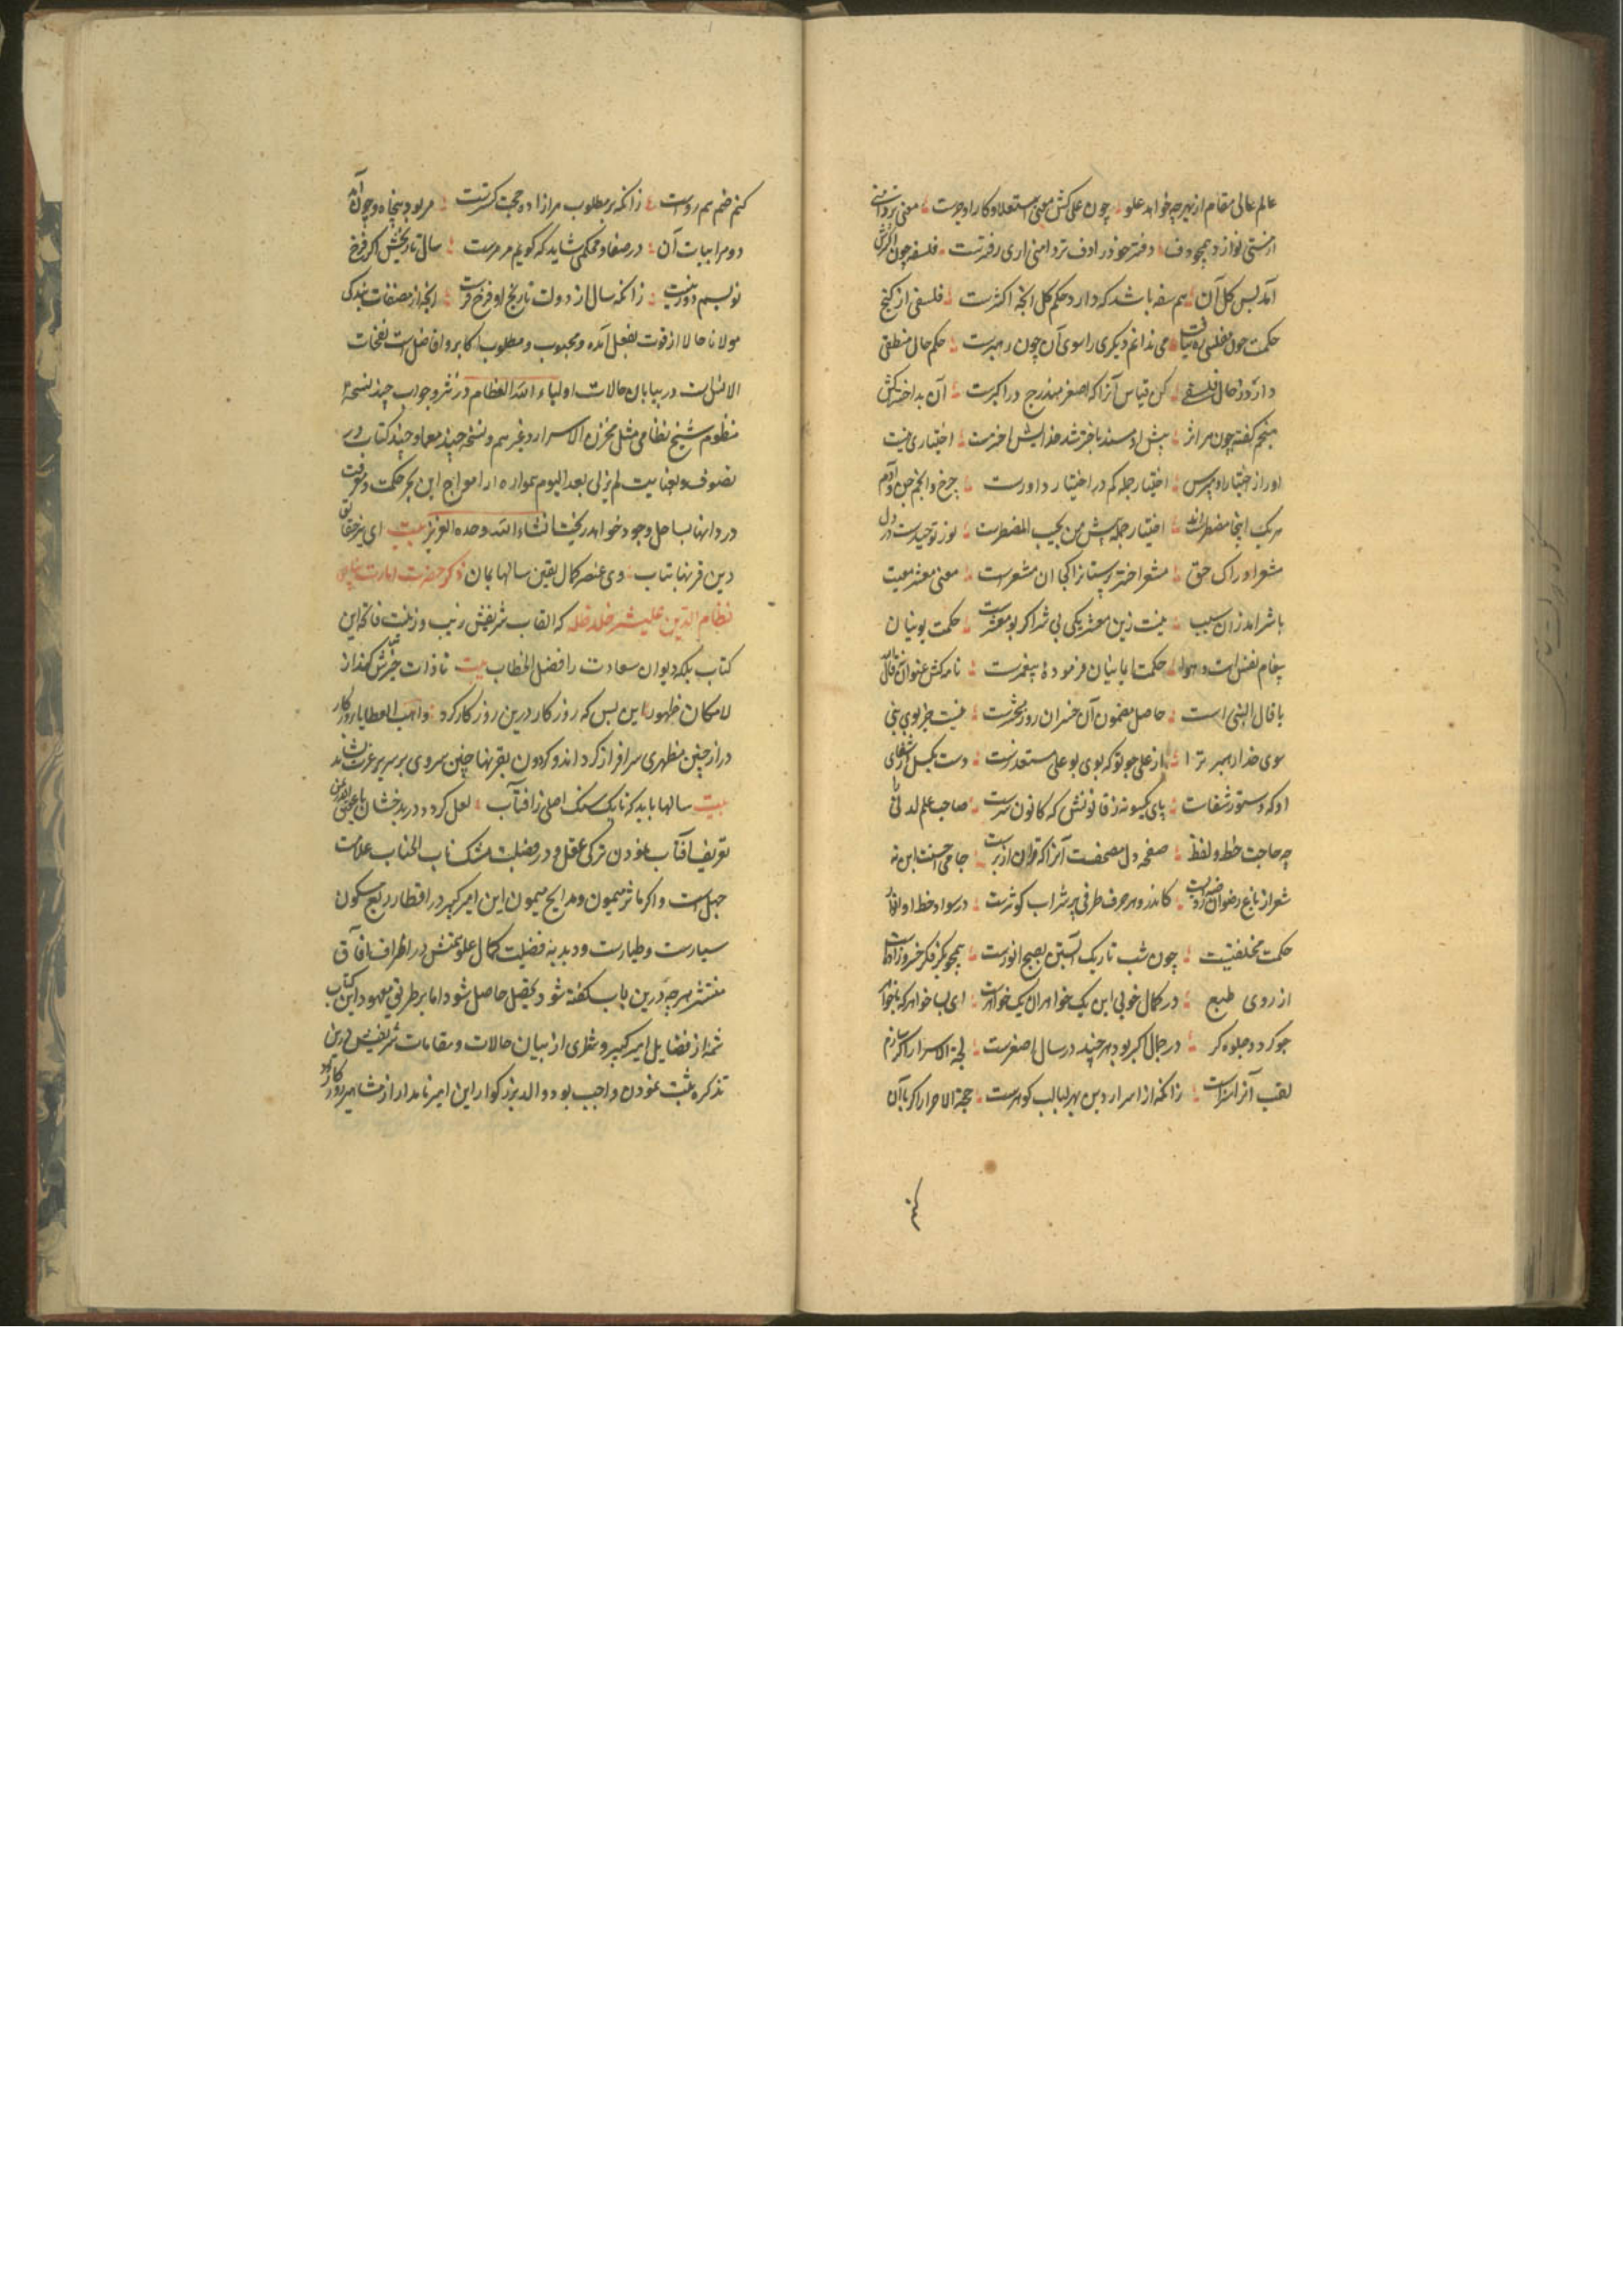 عالم عالی مقام از بهر چه خواهد علو چون علی کش معنی استعلا و کار او جرست معنی تر دامنی
از منی نوازد همچو دف دفتر خود در ادف تر دامنی آری رفترست فلسفه چون اکثرش
آمد پس کل آن هم سفه باشد که دارد حکم کل آنچه اکثرست فلسفی از گنج
حکمت چون بفلسی ره نیافت می ندانم دیگری را سوی آن چون رهبرست حکم حال منطقی
دان زحال فلسفی کن قیاس آنرا که اصغر مندرج در اکبرست آن بد اختر کش
منجم گفته چون مرا اثر پیش او مسند باختر شد خدایش اخترست اختیاری نیست
اورا ز اختیار او مپرس اختیار جمله کم در اختیار داورست چرخ و انجم جن و آدم
هر یک اینجا مضطراند اختیار جمله پیش من یجیب المضطرست نور توحیدست در دل
مشعر ادراک حق مشعر اختر پرستانرا کجا آن مشعرست معنی معشر معیت
باشر آمد زان سبب نیست زین معشر یکی بی شر اگر بو معشرست حکمت یونان
پیغام نفس است و هوا حکمت ایمانیان فرموده پیغمبرست نامه کش عنوان نه قال الله
یا قال النبی است حاصل مضمون آن خسران روز محشرست نیست جز بوی نبی
سوی خدا رهبر ترا از علی جو بو که بوی بو علی مستقذرست دست بگسل از شفای
او که دستور شقاست پای یکسو نه ز قانونش که کانون شرست صاحب علم لدنی را
چه حاجت خط و لفظ صفحه دل مصحفست آنرا که قرآن از برست جامی احسنت این نه
شعر از باغ رضوان روضه ایست کاندرو هر حرف ظرفی پر شراب کوثرست در سواد خط او انوار
حکمت مختفیست چون شب تاریک آبستن بصبح انورست همچو بکر فکر خسرو زاد است
از روی طبع در کمال خوبی این یک خواهر آن یک خواهرست ای بسا خواهر که با خواهر
چو گردد جلوه گر در جمال اکبر بود هر چند در سال اصغرست لجة الاسرار اگر سازم
لقب آنرا سزاست زانکه از اسرار دین بحر لبالب گوهرست حجة الاحرار اگر با آن
کنم
کنم ضم هم رواست زانکه بر مطلوب مر آزاده حجت گسترست مر بود پنجاه و چون آمد
دو مر ابیات آن در صفا و محکمی شاید که گویم مرمرست سال تاریخش اگر فرخ
نویسم دور نیست زانکه سال از دولت تاریخ او فرخ فرست آنچه از مصنفات بندگی
مولانا حالا از قوت بفعل آمده و محبوب و مطلوب اکابر و افاضل است نفحات
الانس است در بیان حالات اولیاء الله العظام در نثر و جواب چند نسخه
منظوم شیخ نظامی مثل مخزن الاسرار و غیرهم و نسخه چند معما و چند کتاب در
تصوف و بعنایت لم یزلی بعد الیوم همواره از امواج این بحر حکمت و معرفت
در دانها بساحل وجود خواهد ریخت انشاء الله وحده العزیز بیت ای بنر حقایق
دین قرنها بتاب وی عنصر کمال یقین سالها بمان ذکر حضرت امارت پناهی
نظام الدین علیشیر خلد ظله که القاب شریفش زیب و زینت فاتحه این
کتاب بلکه دیوان سعادت را فصل الخطاب بیت تا ذات خیرش گذر از
لامکان ظهور این بس که روزگار درین روز کار کرد واهب العطایا روزگار
دراز چنین مظهری سرافراز گرداند و گردون بقرنها چنین سروی بر سریر عزت نشاند
بیت سالها باید که تا یک سنگ اصلی ز آفتاب لعل گردد در بدخشان یا عقیق اندر یمن
تعریف آفتاب نمودن ترکی عقل و در فضیلت مشک ناب اطناب علامت
جهل است و اگر مآثر میمون و مدایح میمون این امیر کبیر در اقطار ربع مسکون
سیارست و طیارست و دبدبه فضیلت کمال علو همتش در اطراف آفاق
منتشر هر چه درین باب گفته شود تحصیل حاصل شود اما بر طریق معهود این کتاب
شمه از فضایل امیر کبیر و شطری از بیان حالات و مقامات شریفش درین
تذکره ثبت نمودن واجب بود والد بزرگوار این امیر نامدار از مشاهیر روزگار بود